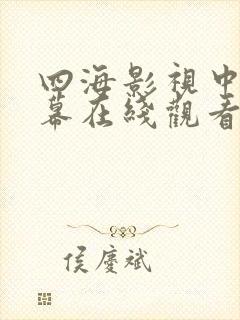 四海影視中
幕在綫觀看
侯慶斌